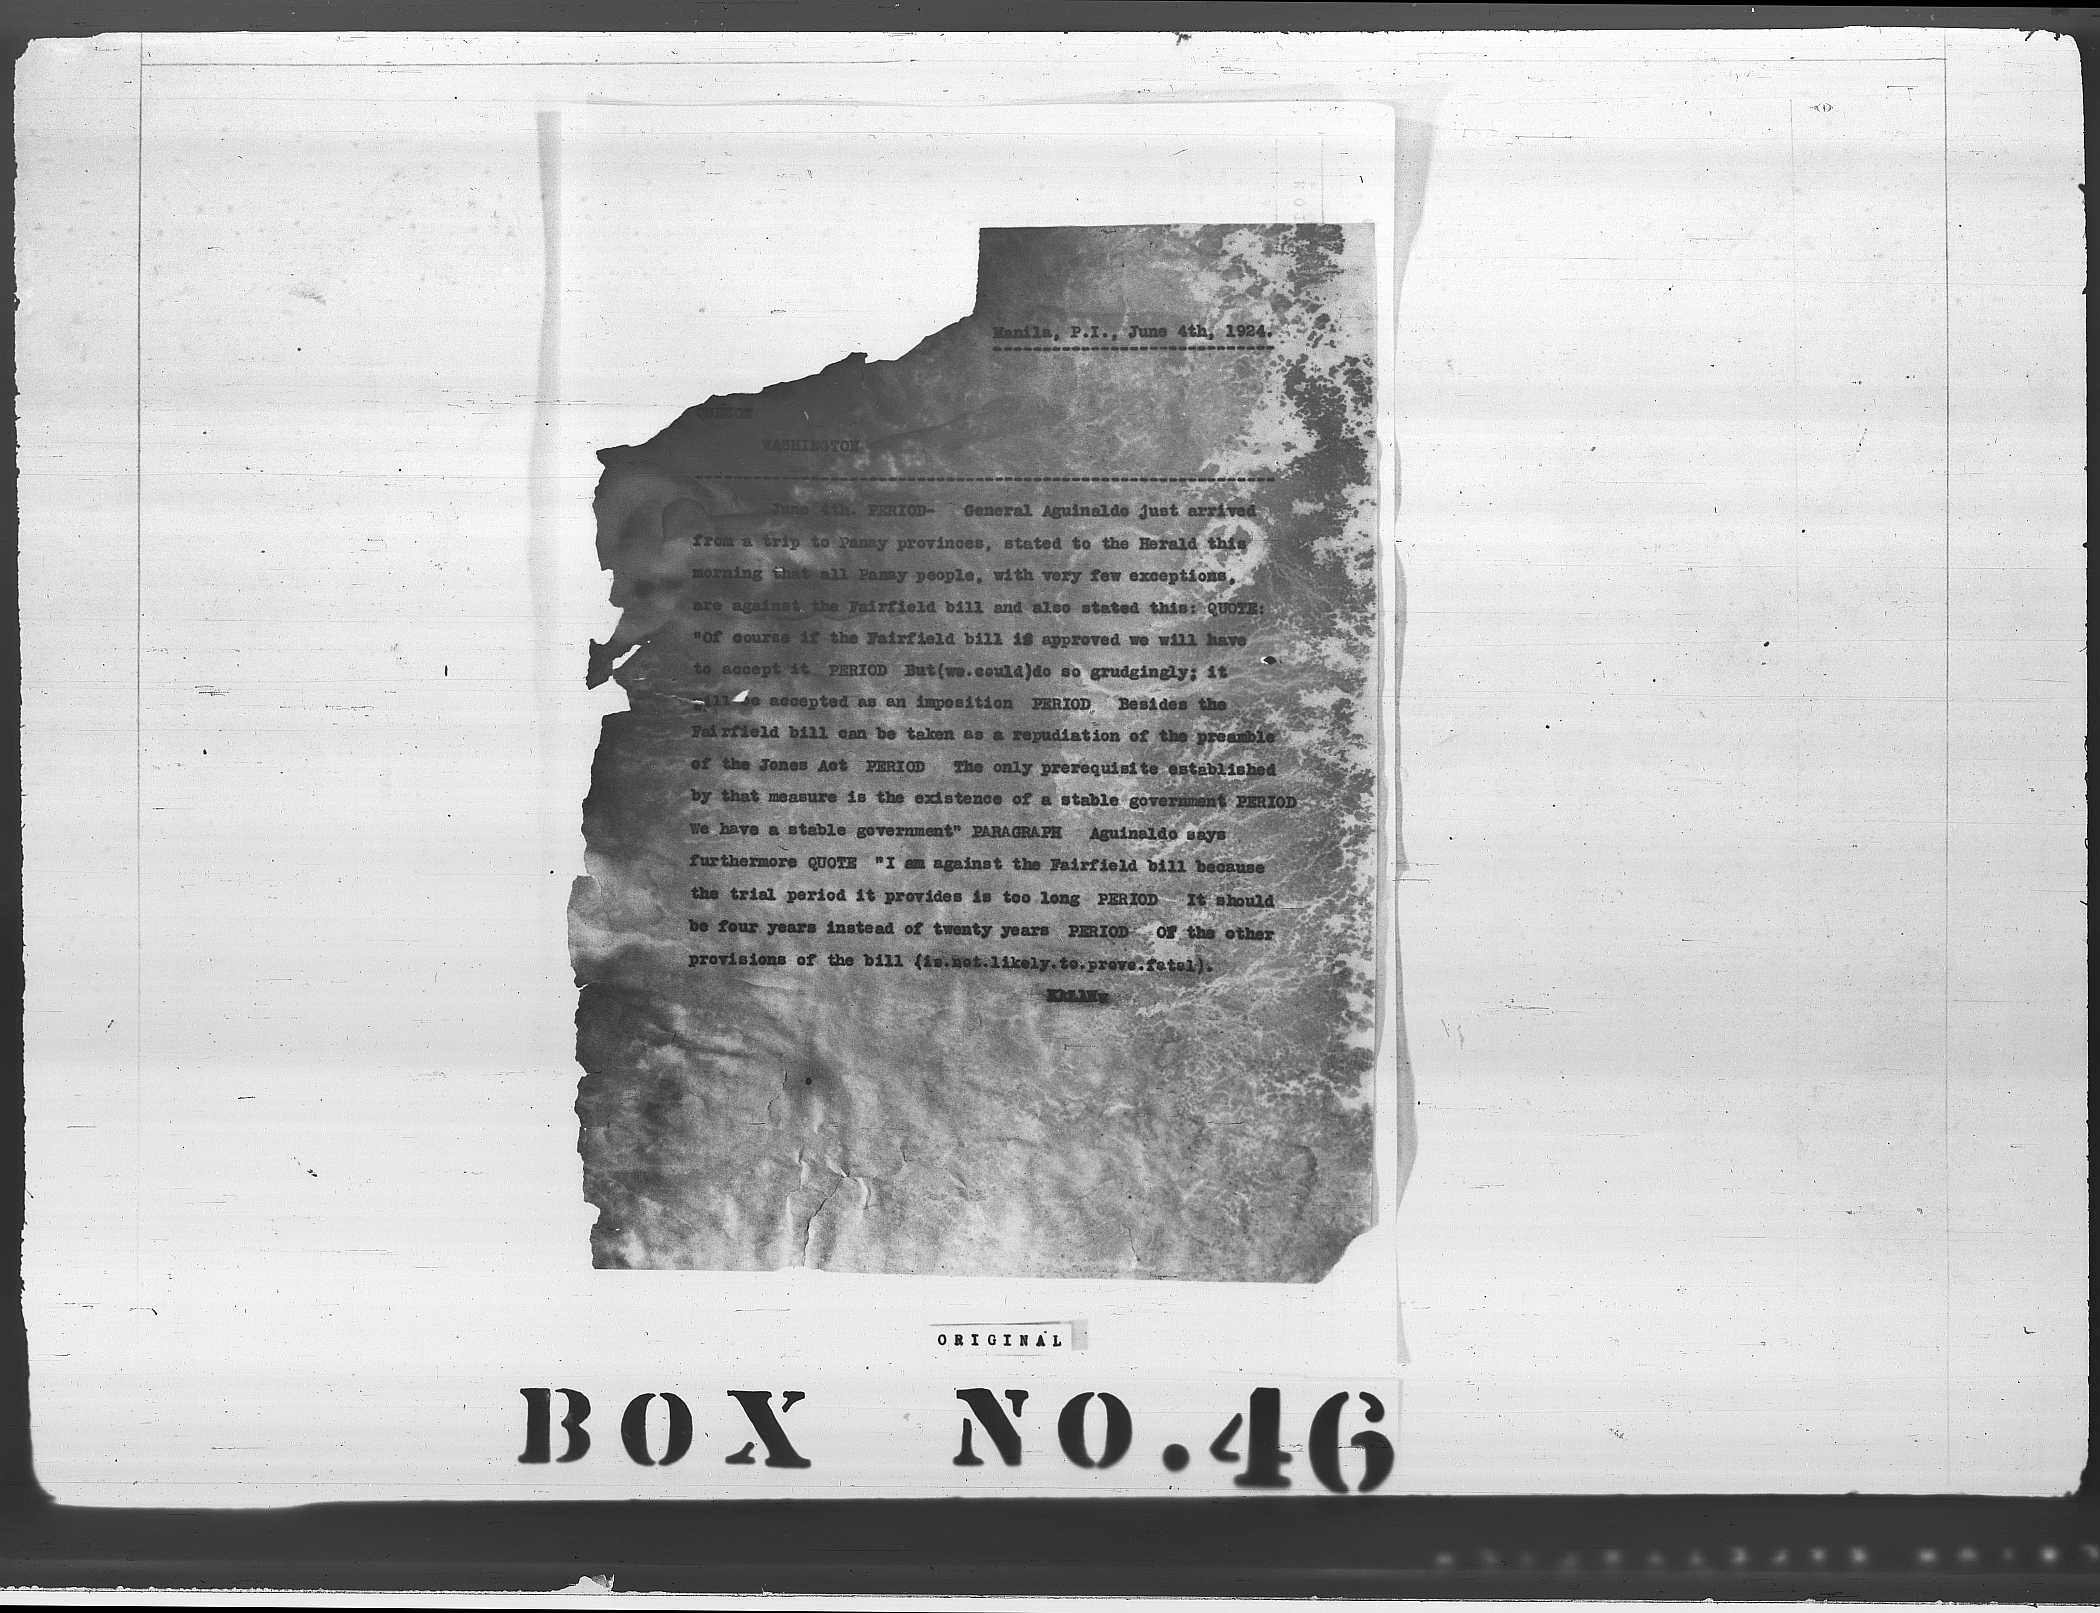 Manila, P.I., June 4th, 1924.
QUEZON
WASHINGTON
June 4th. PERIOD- General Aguinaldo just arrived
from a trip to Panay provinces, stated to the Herald this
morning that all Panay people, with very few exceptions,
are against the Fairfield bill and also stated this: QUOTE:
"Of course if the Fairfield bill is approved we will have
to accept it PERIOD But(we.could)do so grudgingly; it
will be accepted as an imposition PERIOD Besides the
Fairfield bill can be taken as a repudiation of the preamble
of the Jones Act PERIOD The only prerequisite established
by that measure is the existence of a stable government PERIOD
We have a stable government" PARAGRAPH Aguinaldo says
furthermore QUOTE "I am against the Fairfield bill because
the trial period it provides is too long PERIOD It should
be four years instead of twenty years PERIOD Of the other
provisions of the bill (is.not.likely.to.prove.fatal).
ORIGINAL
BOX NO.46